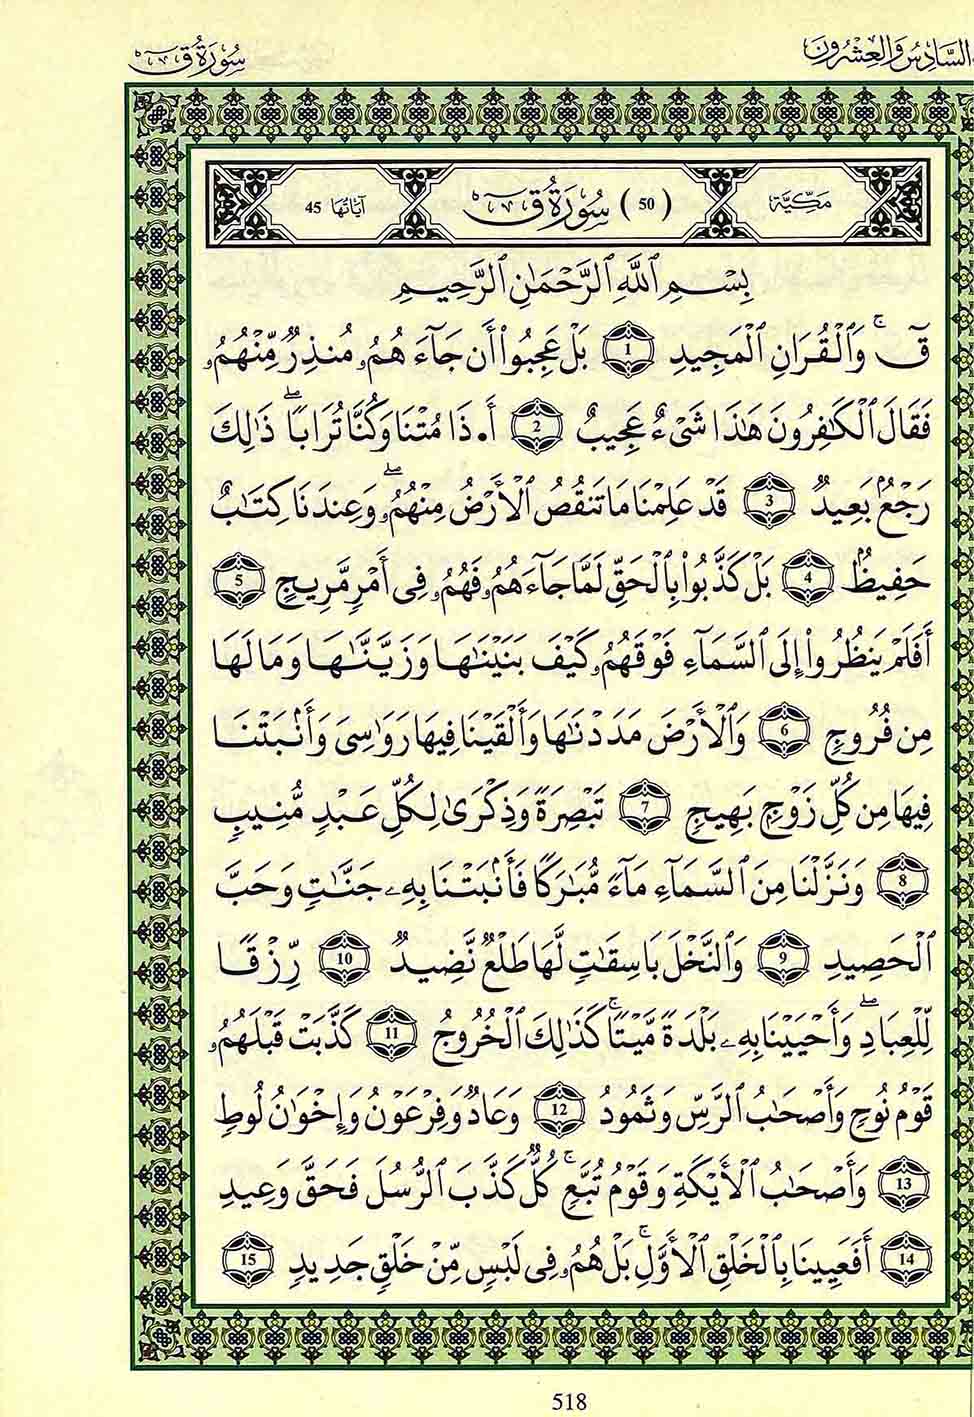 السَّادِسُ وَالْعِشْرُونَ
سُورَةُ قٓ
مَكِّيَّة (50) سُورَةُ قٓ آيَاتُهَا 45
بِسْمِ ٱللَّهِ ٱلرَّحْمَٰنِ ٱلرَّحِيمِ
قٓۚ وَٱلْقُرَانِ ٱلْمَجِيدِ 1 بَلْ عَجِبُوٓا۟ أَن جَآءَهُمُۥ مُنذِرٌ مِّنْهُمُۥ
فَقَالَ ٱلْكَٰفِرُونَ هَٰذَا شَىْءٌ عَجِيبٌ 2 أَ.ذَا مُتْنَا وَكُنَّا تُرَابًاۖ ذَٰلِكَ
رَجْعٌۢ بَعِيدٌ 3 قَدْ عَلِمْنَا مَا تَنقُصُ ٱلْأَرْضُ مِنْهُمُۥۖ وَعِندَنَا كِتَٰبٌ
حَفِيظٌۢ 4 بَلْ كَذَّبُوا۟ بِٱلْحَقِّ لَمَّا جَآءَهُمُۥ فَهُمُۥ فِىٓ أَمْرٍ مَّرِيجٍ 5
أَفَلَمْ يَنظُرُوٓا۟ إِلَى ٱلسَّمَآءِ فَوْقَهُمُۥ كَيْفَ بَنَيْنَٰهَا وَزَيَّنَّٰهَا وَمَا لَهَا
مِن فُرُوجٍ 6 وَٱلْأَرْضَ مَدَدْنَٰهَا وَأَلْقَيْنَا فِيهَا رَوَٰسِىَ وَأَنۢبَتْنَا
فِيهَا مِن كُلِّ زَوْجٍۭ بَهِيجٍ 7 تَبْصِرَةً وَذِكْرَىٰ لِكُلِّ عَبْدٍ مُّنِيبٍ
8 وَنَزَّلْنَا مِنَ ٱلسَّمَآءِ مَآءً مُّبَٰرَكًا فَأَنۢبَتْنَا بِهِۦ جَنَّٰتٍ وَحَبَّ
ٱلْحَصِيدِ 9 وَٱلنَّخْلَ بَاسِقَٰتٍ لَّهَا طَلْعٌ نَّضِيدٌ 10 رِّزْقًا
لِّلْعِبَادِۖ وَأَحْيَيْنَا بِهِۦ بَلْدَةً مَّيْتًاۚ كَذَٰلِكَ ٱلْخُرُوجُ 11 كَذَّبَتْ قَبْلَهُمُۥ
قَوْمُ نُوحٍ وَأَصْحَٰبُ ٱلرَّسِّ وَثَمُودُ 12 وَعَادٌ وَفِرْعَوْنُ وَإِخْوَٰنُ لُوطٍ
13 وَأَصْحَٰبُ ٱلْأَيْكَةِ وَقَوْمُ تُبَّعٍۚ كُلٌّ كَذَّبَ ٱلرُّسُلَ فَحَقَّ وَعِيدِ
14 أَفَعَيِينَا بِٱلْخَلْقِ ٱلْأَوَّلِۚ بَلْ هُمُۥ فِى لَبْسٍ مِّنْ خَلْقٍ جَدِيدٍ 15
518